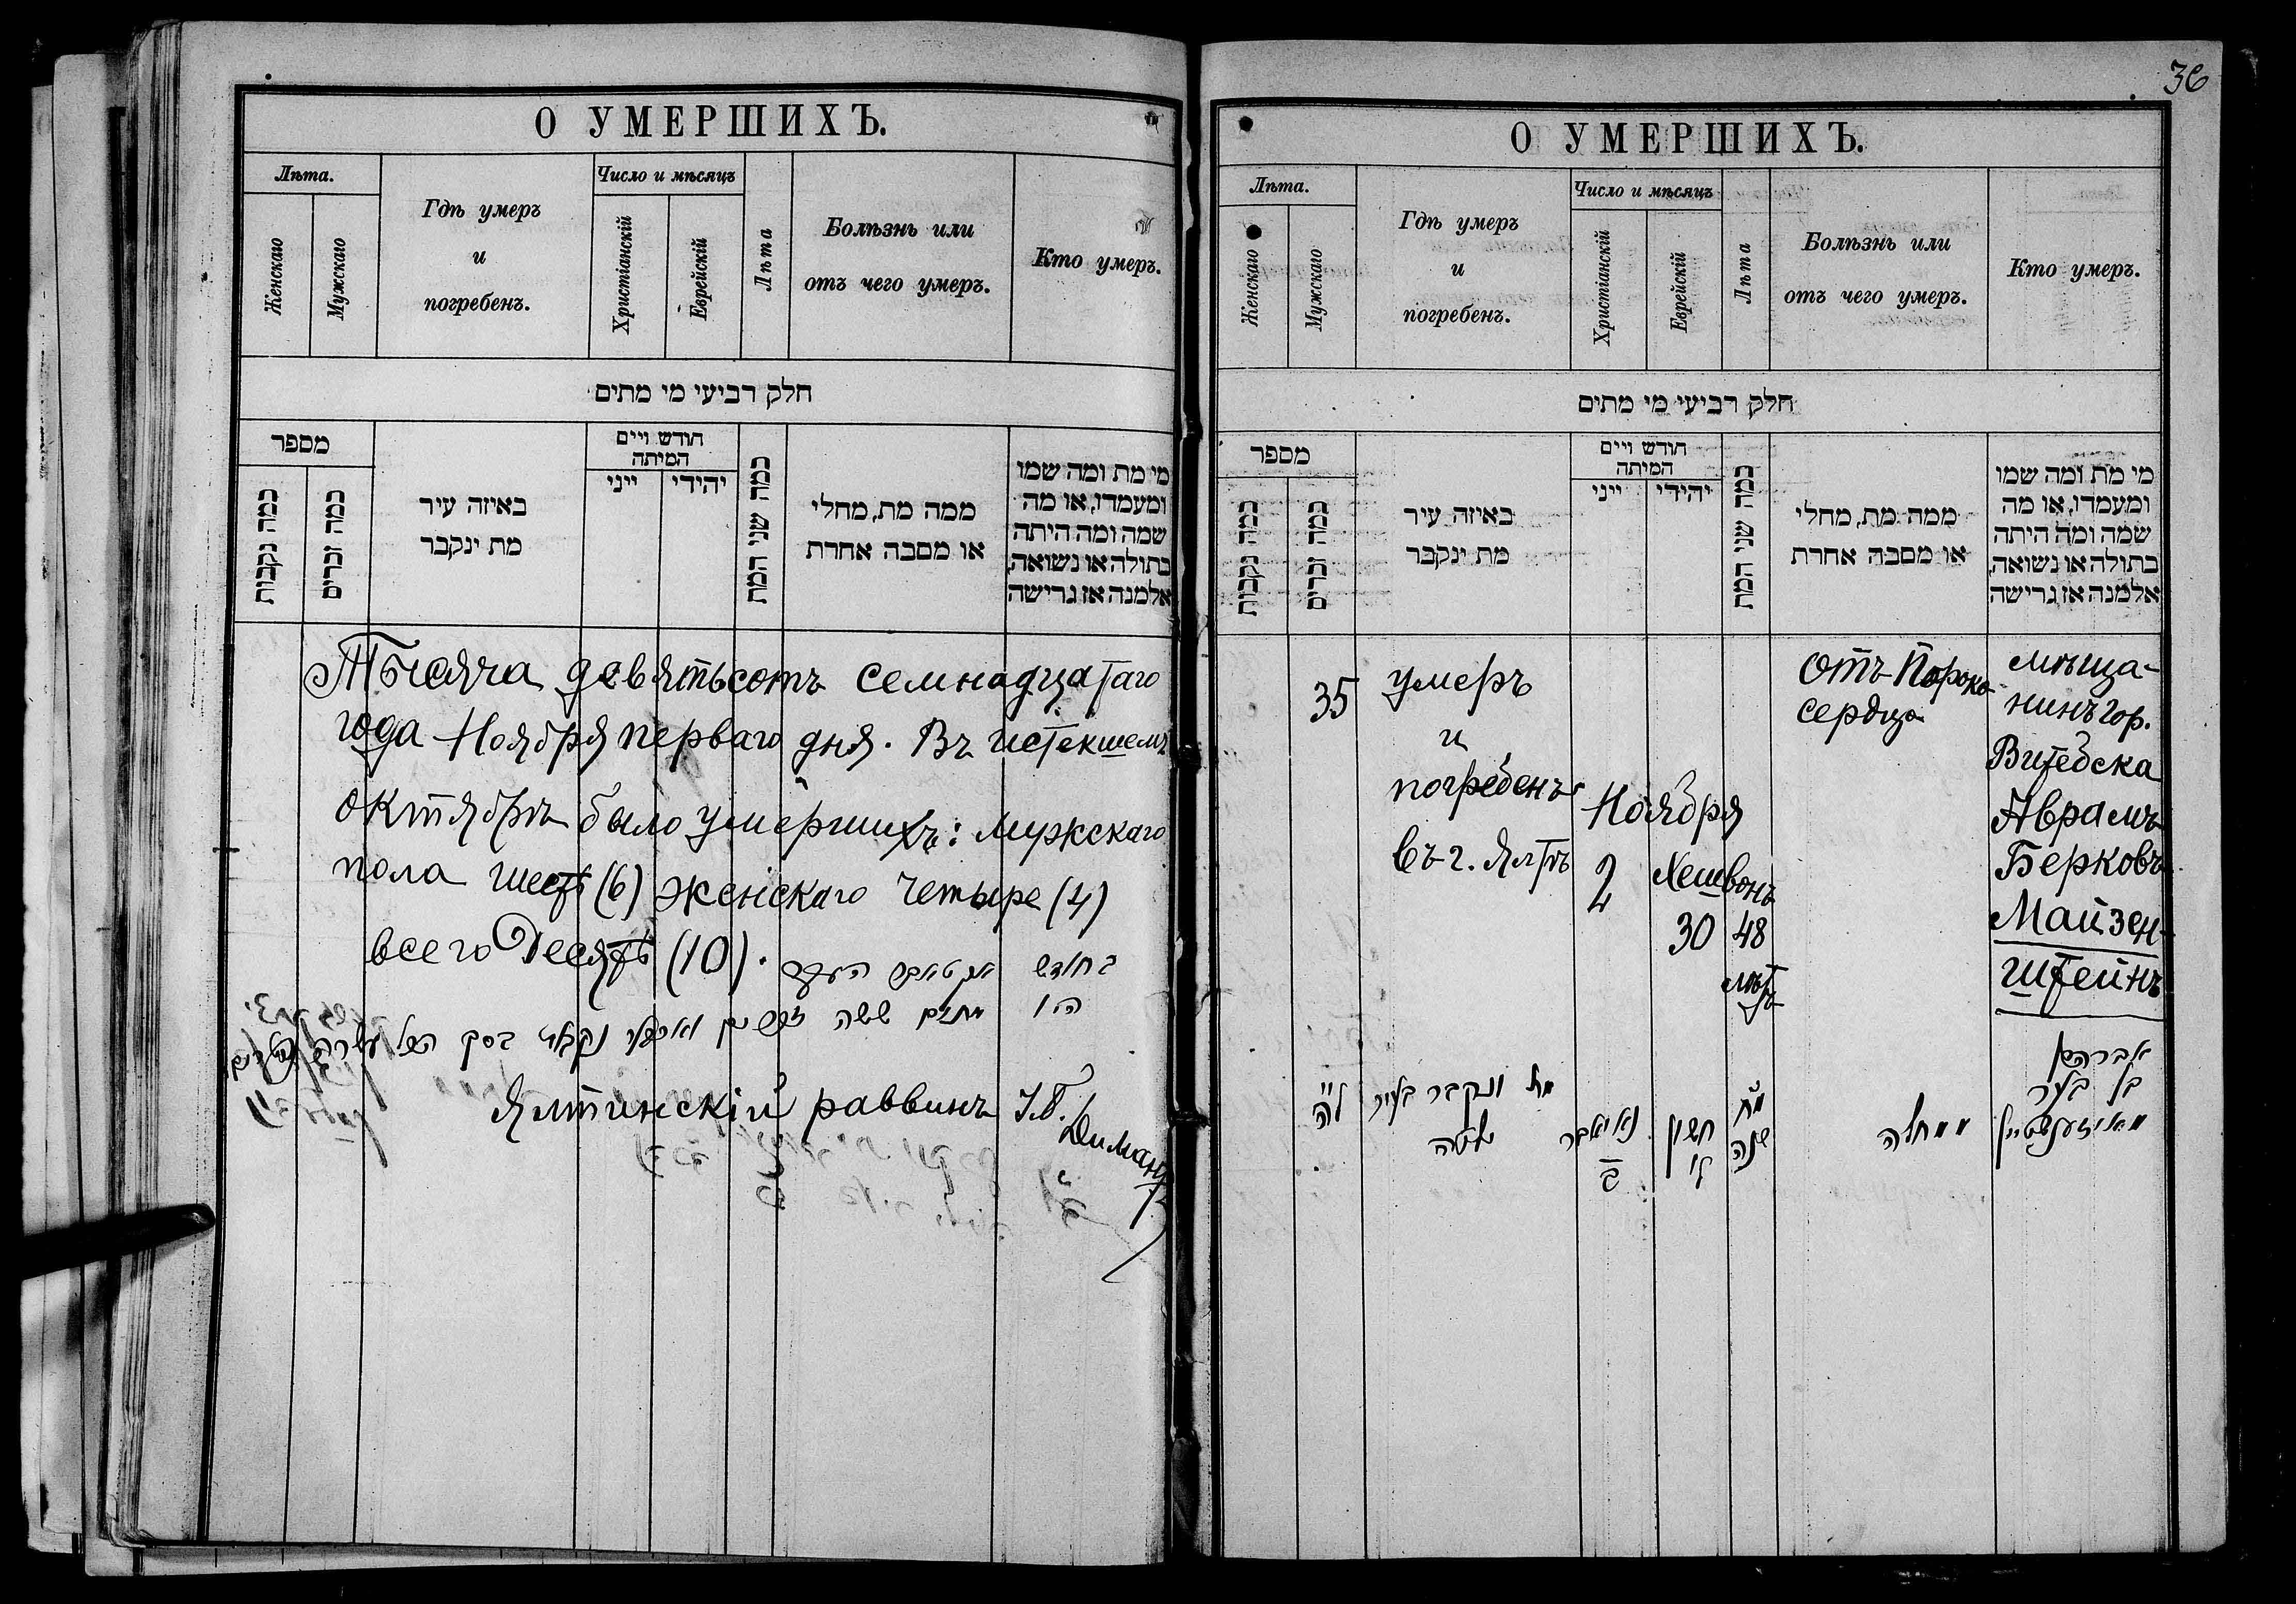 О УМЕРШИХЪ.
Лѣта.
Женскаго
Мужскаго
Гдѣ умеръ
и
погребенъ.
Число и мѣсяцъ
Христіанскій
Еврейскій
Лѣта
Болѣзнь или
отъ чего умеръ.
Кто умеръ.
חלק רביעי מי מתים
מספר
כמה נקבות
כמה זכרים
באיזה עיר
מת ינקבר
חודש ויים
המיתה
ייני
יהידי
כמה שני המת
ממה מת, מחלי
או מסבה אחרת
מי מת ומה שמו
ומעמדו, או מה
שמה ומה היתה
בתולה או נשואה,
אלמנה אז גרישה
Тысяча девятьсотъ семнадцатаго
года Ноября перваго дня. Въ истекшемъ
октябрѣ было умершихъ: мужскаго
пола шесть (6) женскаго четыре (4)
всего Десять (10).
בחודש
היו מתים ששה
Ялтинскій раввинъ
36
О УМЕРШИХЪ.
Лѣта.
Женскаго
Мужскаго
Гдѣ умеръ
и
погребенъ.
Число и мѣсяцъ
Христіанскій
Еврейскій
Лѣта
Болѣзнь или
отъ чего умеръ.
Кто умеръ.
חלק רביעי מי מתים
מספר
כמה נקבות
כמה זכרים
באיזה עיר
מת ינקבר
חודש ויים
המיתה
ייני
יהידי
כמה שני המת
ממה מת, מחלי
או מסבה אחרת
מי מת ומה שמו
ומעמדו, או מה
שמה ומה היתה
בתולה או נשואה,
אלמנה אז גרישה
35
умеръ
и
погребенъ
въ г. Ялтѣ
Ноября
2
Хешвонъ
30
48
лѣтъ
отъ Порока
сердца
мѣща-
нинъ гор.
Витебска
Аврамъ
Берковъ
Майзен-
штейнъ
ל״ה
מת ונקבר בעיר
יאלטה
נאיאבר
ב
חשון
ל׳
מ״ח
שנה
ממחלה
אברהם
בן בער
מאיזענשטיין